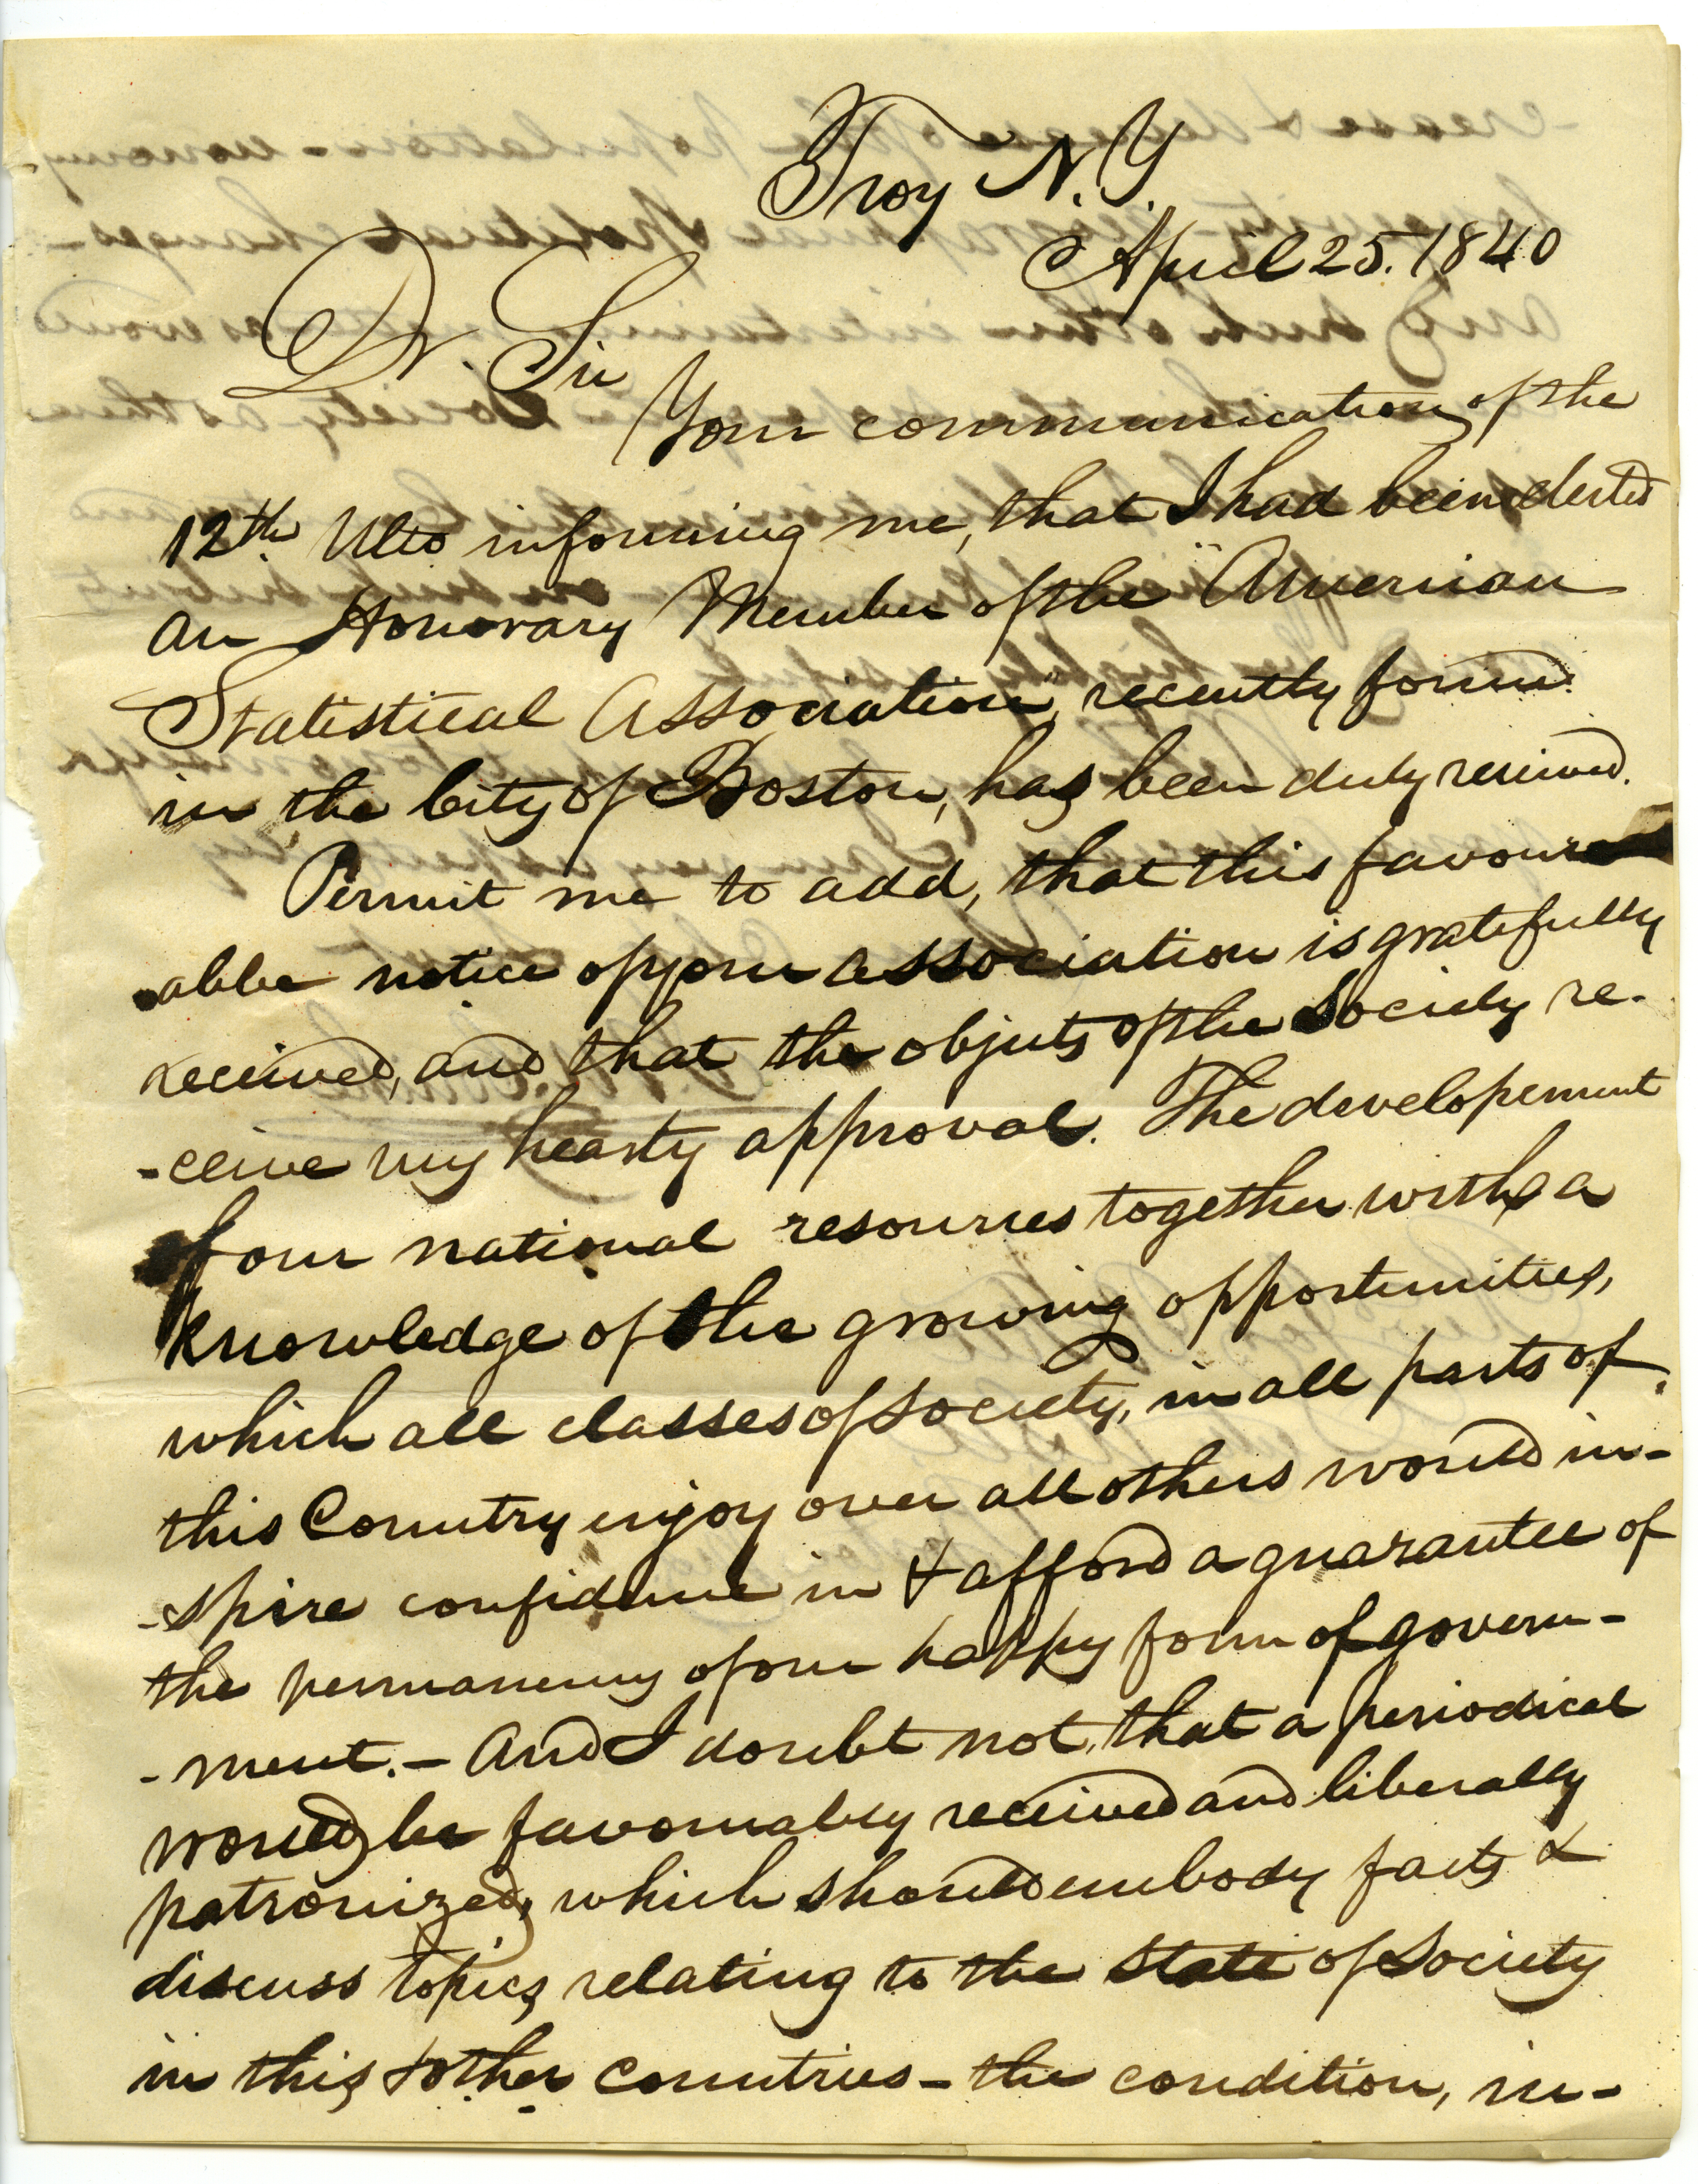 Troy N.Y.
April 25. 1840
Dr. Sir
Your communication of the
12th Ulto informing me, that I had been elected
an Honorary Member of the "American
Statistical Association", recently formed
in the City of Boston, has been duly received.
Permit me to add, that this favour
-able notice of your association is gratefully
received, and that the objects of the Society re-
-ceive my hearty approval. The developement
of our national resources together with a
knowledge of the growing opportunities,
which all classes of society, in all parts of
this Country enjoy over all others would in-
-spire confidence in & afford a guarantee of
the permanency of our happy form of govern-
-ment. - And I doubt not, that a periodical
would be favourably received and liberally
patronized, which should embody facts &
discuss topics relating to the state of society
in this & other countries - the condition, in-